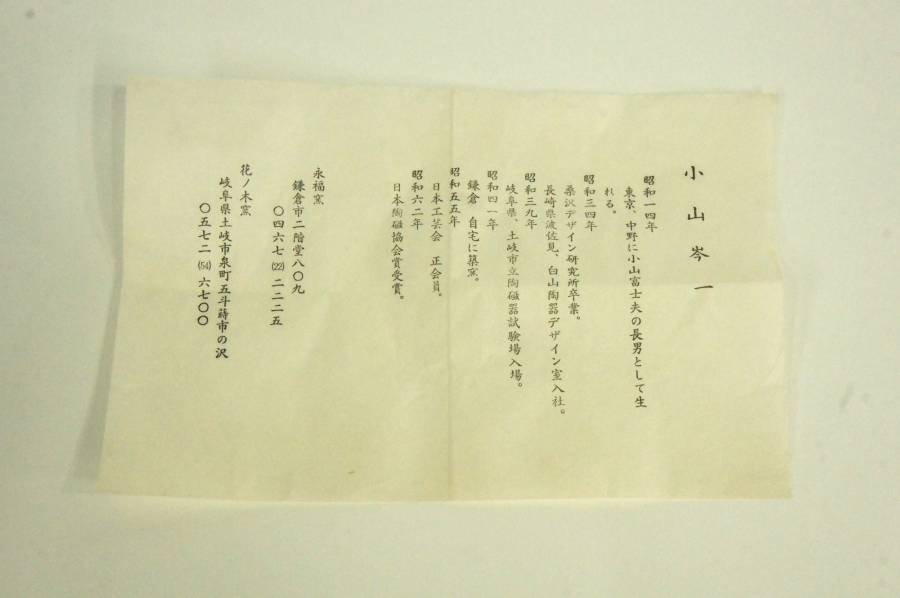 小山岑一
昭和一四年
東京、中野に小山富士夫の長男として生
れる。
昭和三四年
桑沢デザイン研究所卒業。
長崎県波佐見、白山陶器デザイン室入社。
昭和三九年
岐阜県、土岐市立陶磁器試験場入場。
昭和四一年
鎌倉 自宅に築窯。
昭和五五年
日本工芸会 正会員。
昭和六二年
日本陶磁協会賞受賞。
永福窯
鎌倉市二階堂八〇九
〇四六七㉒二二二五
花ノ木窯
岐阜県土岐市泉町五斗蒔市の沢
〇五七二(54)六七〇〇